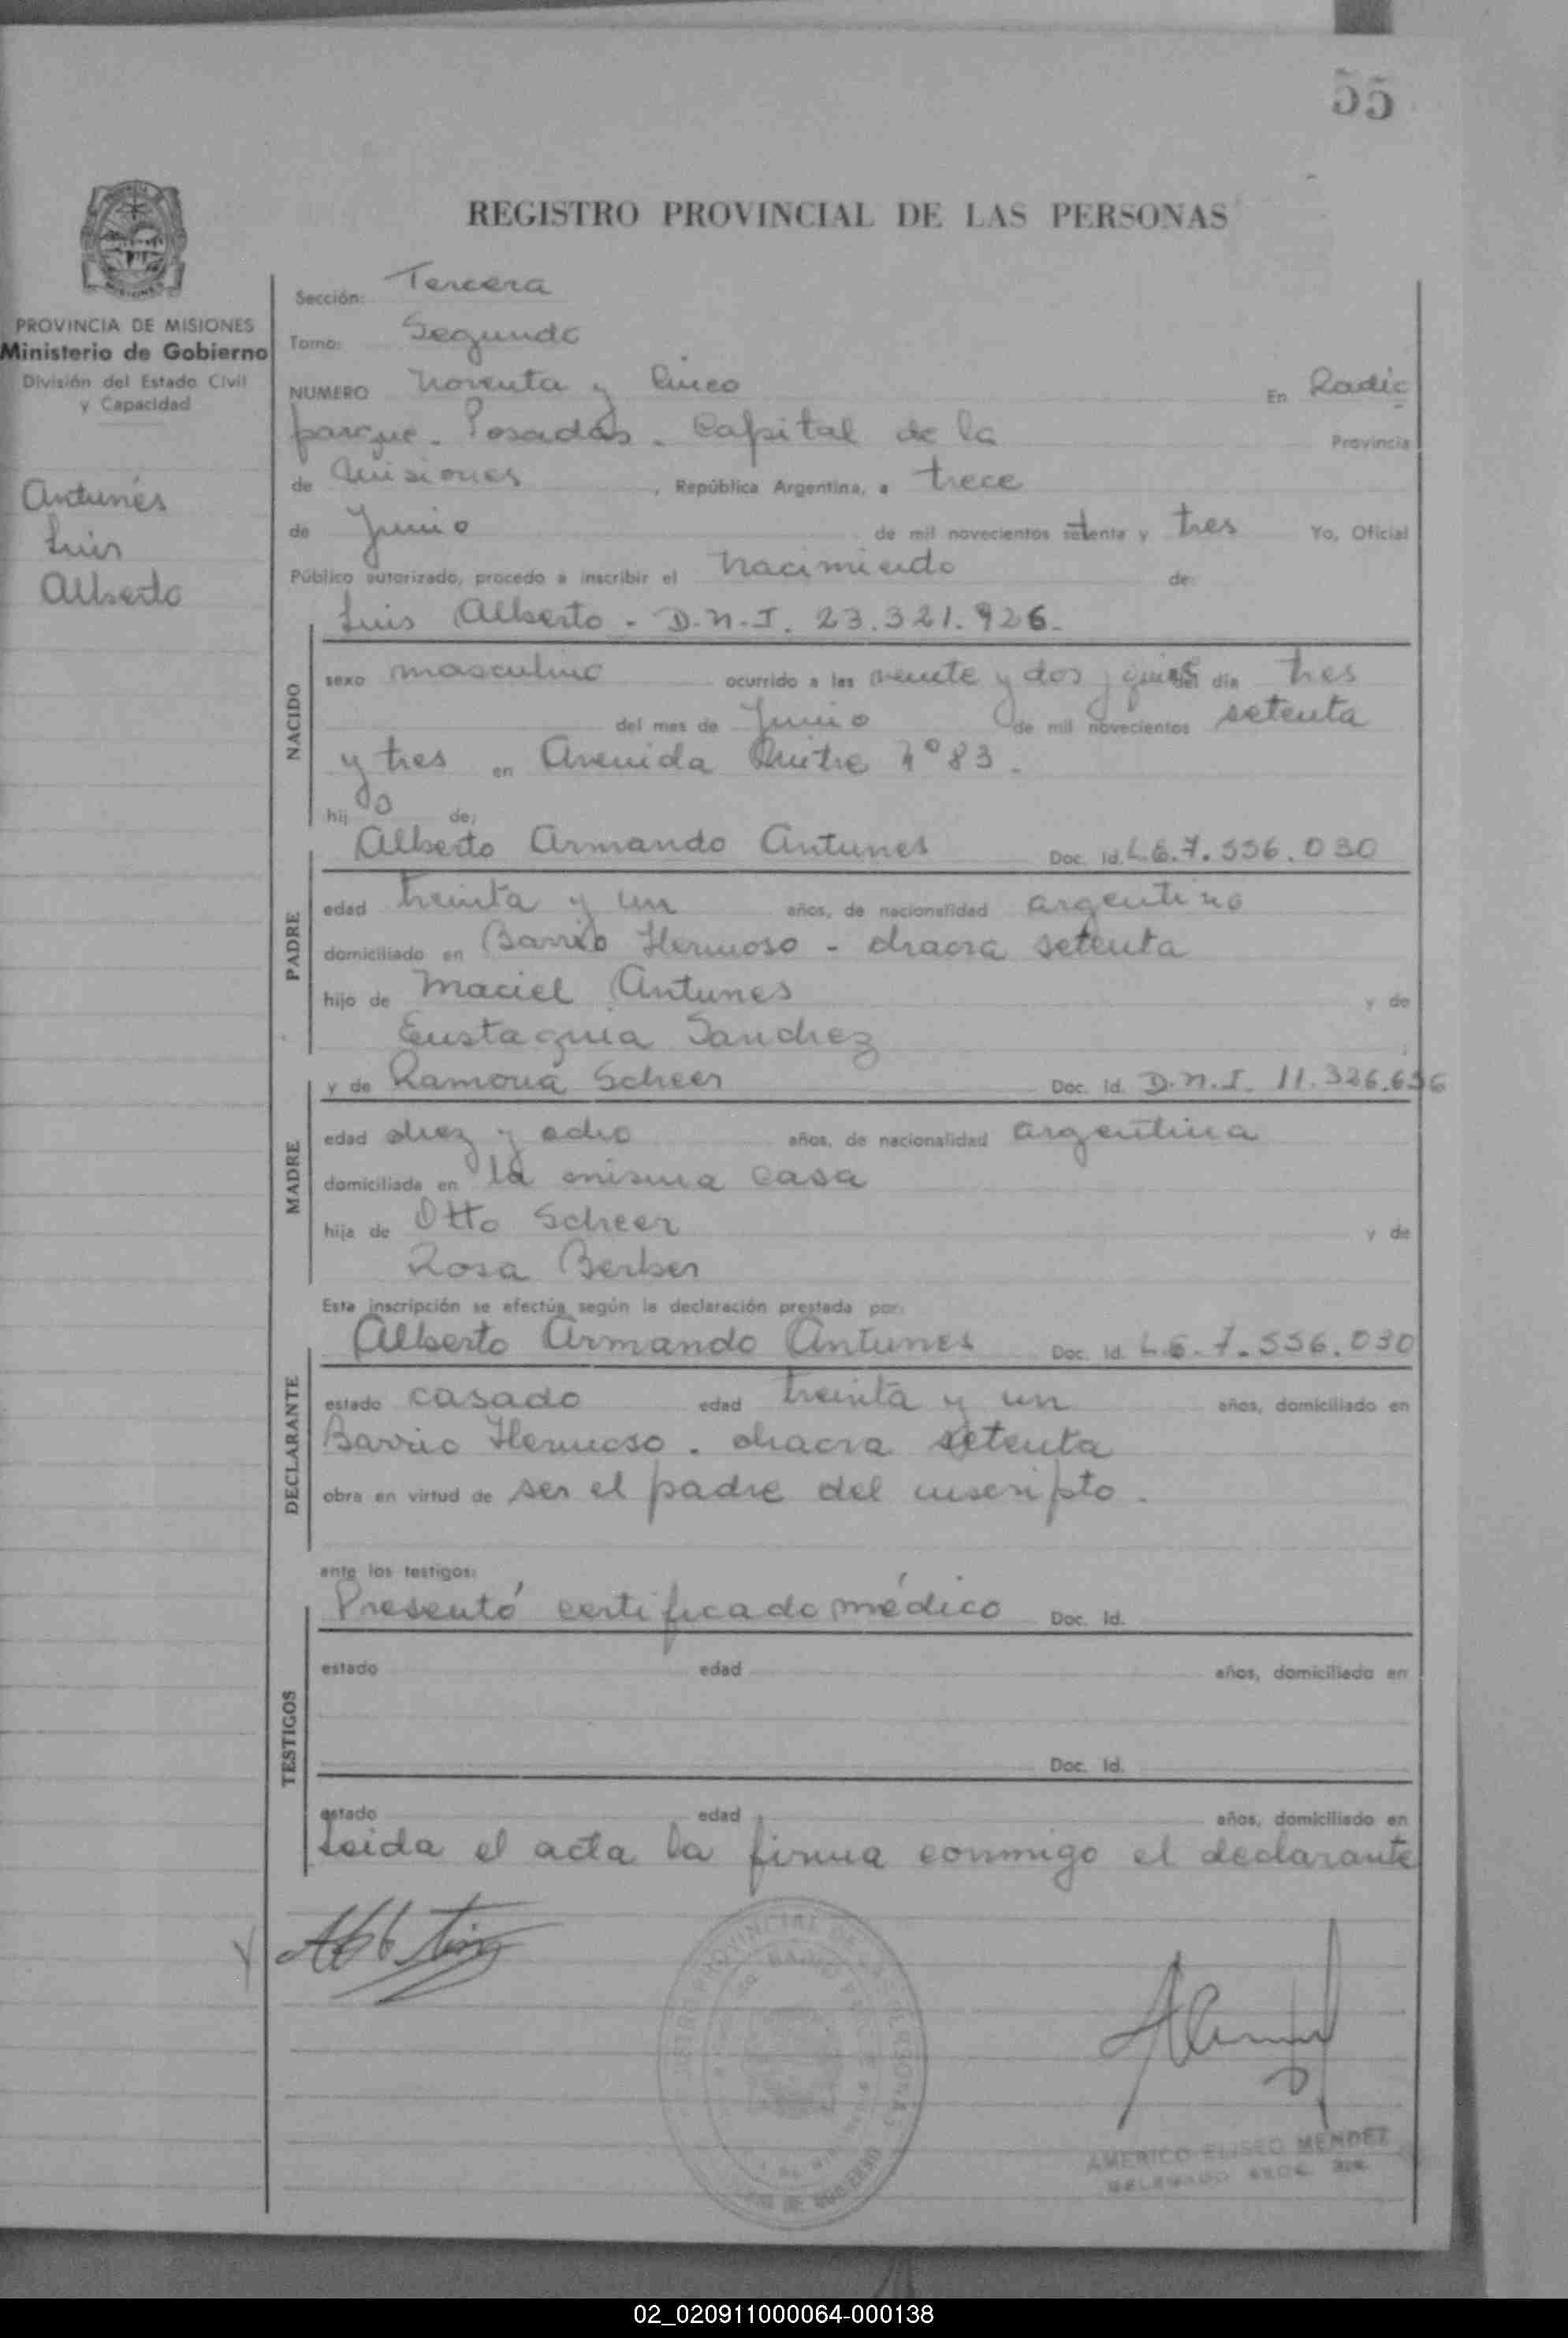 55
REGISTRO PROVINCIAL DE LAS PERSONAS
PROVINCIA DE MISIONES
Ministerio de Gobierno
División del Estado Civil
y Capacidad
Antunes
Luis
Alberto
Sección: Tercera
Tomo: Segundo
NUMERO Noventa y Cinco En Radio
parque. Posadas. Capital de la Provincia
de Misiones, República Argentina, a trece
de Junio de mil novecientos setenta y tres Yo, Oficial
Público autorizado, procedo a inscribir el nacimiento de:
Luis Alberto - D.N.I. 23.321.926.
NACIDO
sexo masculino ocurrido a las veinte y dos y del día tres
del mes de Junio de mil novecientos setenta
y tres en Avenida Mitre Nº 83.
hijo de:
Alberto Armando Antunes Doc. Id. L.E. 7.556.030
PADRE
edad treinta y un años, de nacionalidad argentino
domiciliado en Barrio Hermoso - chacra setenta
hijo de Maciel Antunes y de
Eustaquia Sanchez
y de Ramona Scheer Doc. Id. D.N.I. 11.326.656
MADRE
edad diez y ocho años, de nacionalidad argentina
domiciliada en la misma casa
hija de Otto Scheer y de
Rosa Berber
Esta inscripción se efectúa según la declaración prestada por:
Alberto Armando Antunes Doc. Id. L.E. 7.556.030
DECLARANTE
estado casado edad treinta y un años, domiciliado en
Barrio Hermoso. chacra setenta
obra en virtud de ser el padre del inscripto.
ante los testigos:
Presentó certificado médico Doc. Id.
TESTIGOS
estado edad años, domiciliado en
Doc. Id.
estado edad años, domiciliado en
Leida el acta la firma conmigo el declarante
AMERICO ELISEO MENDEZ
02_020911000064-000138